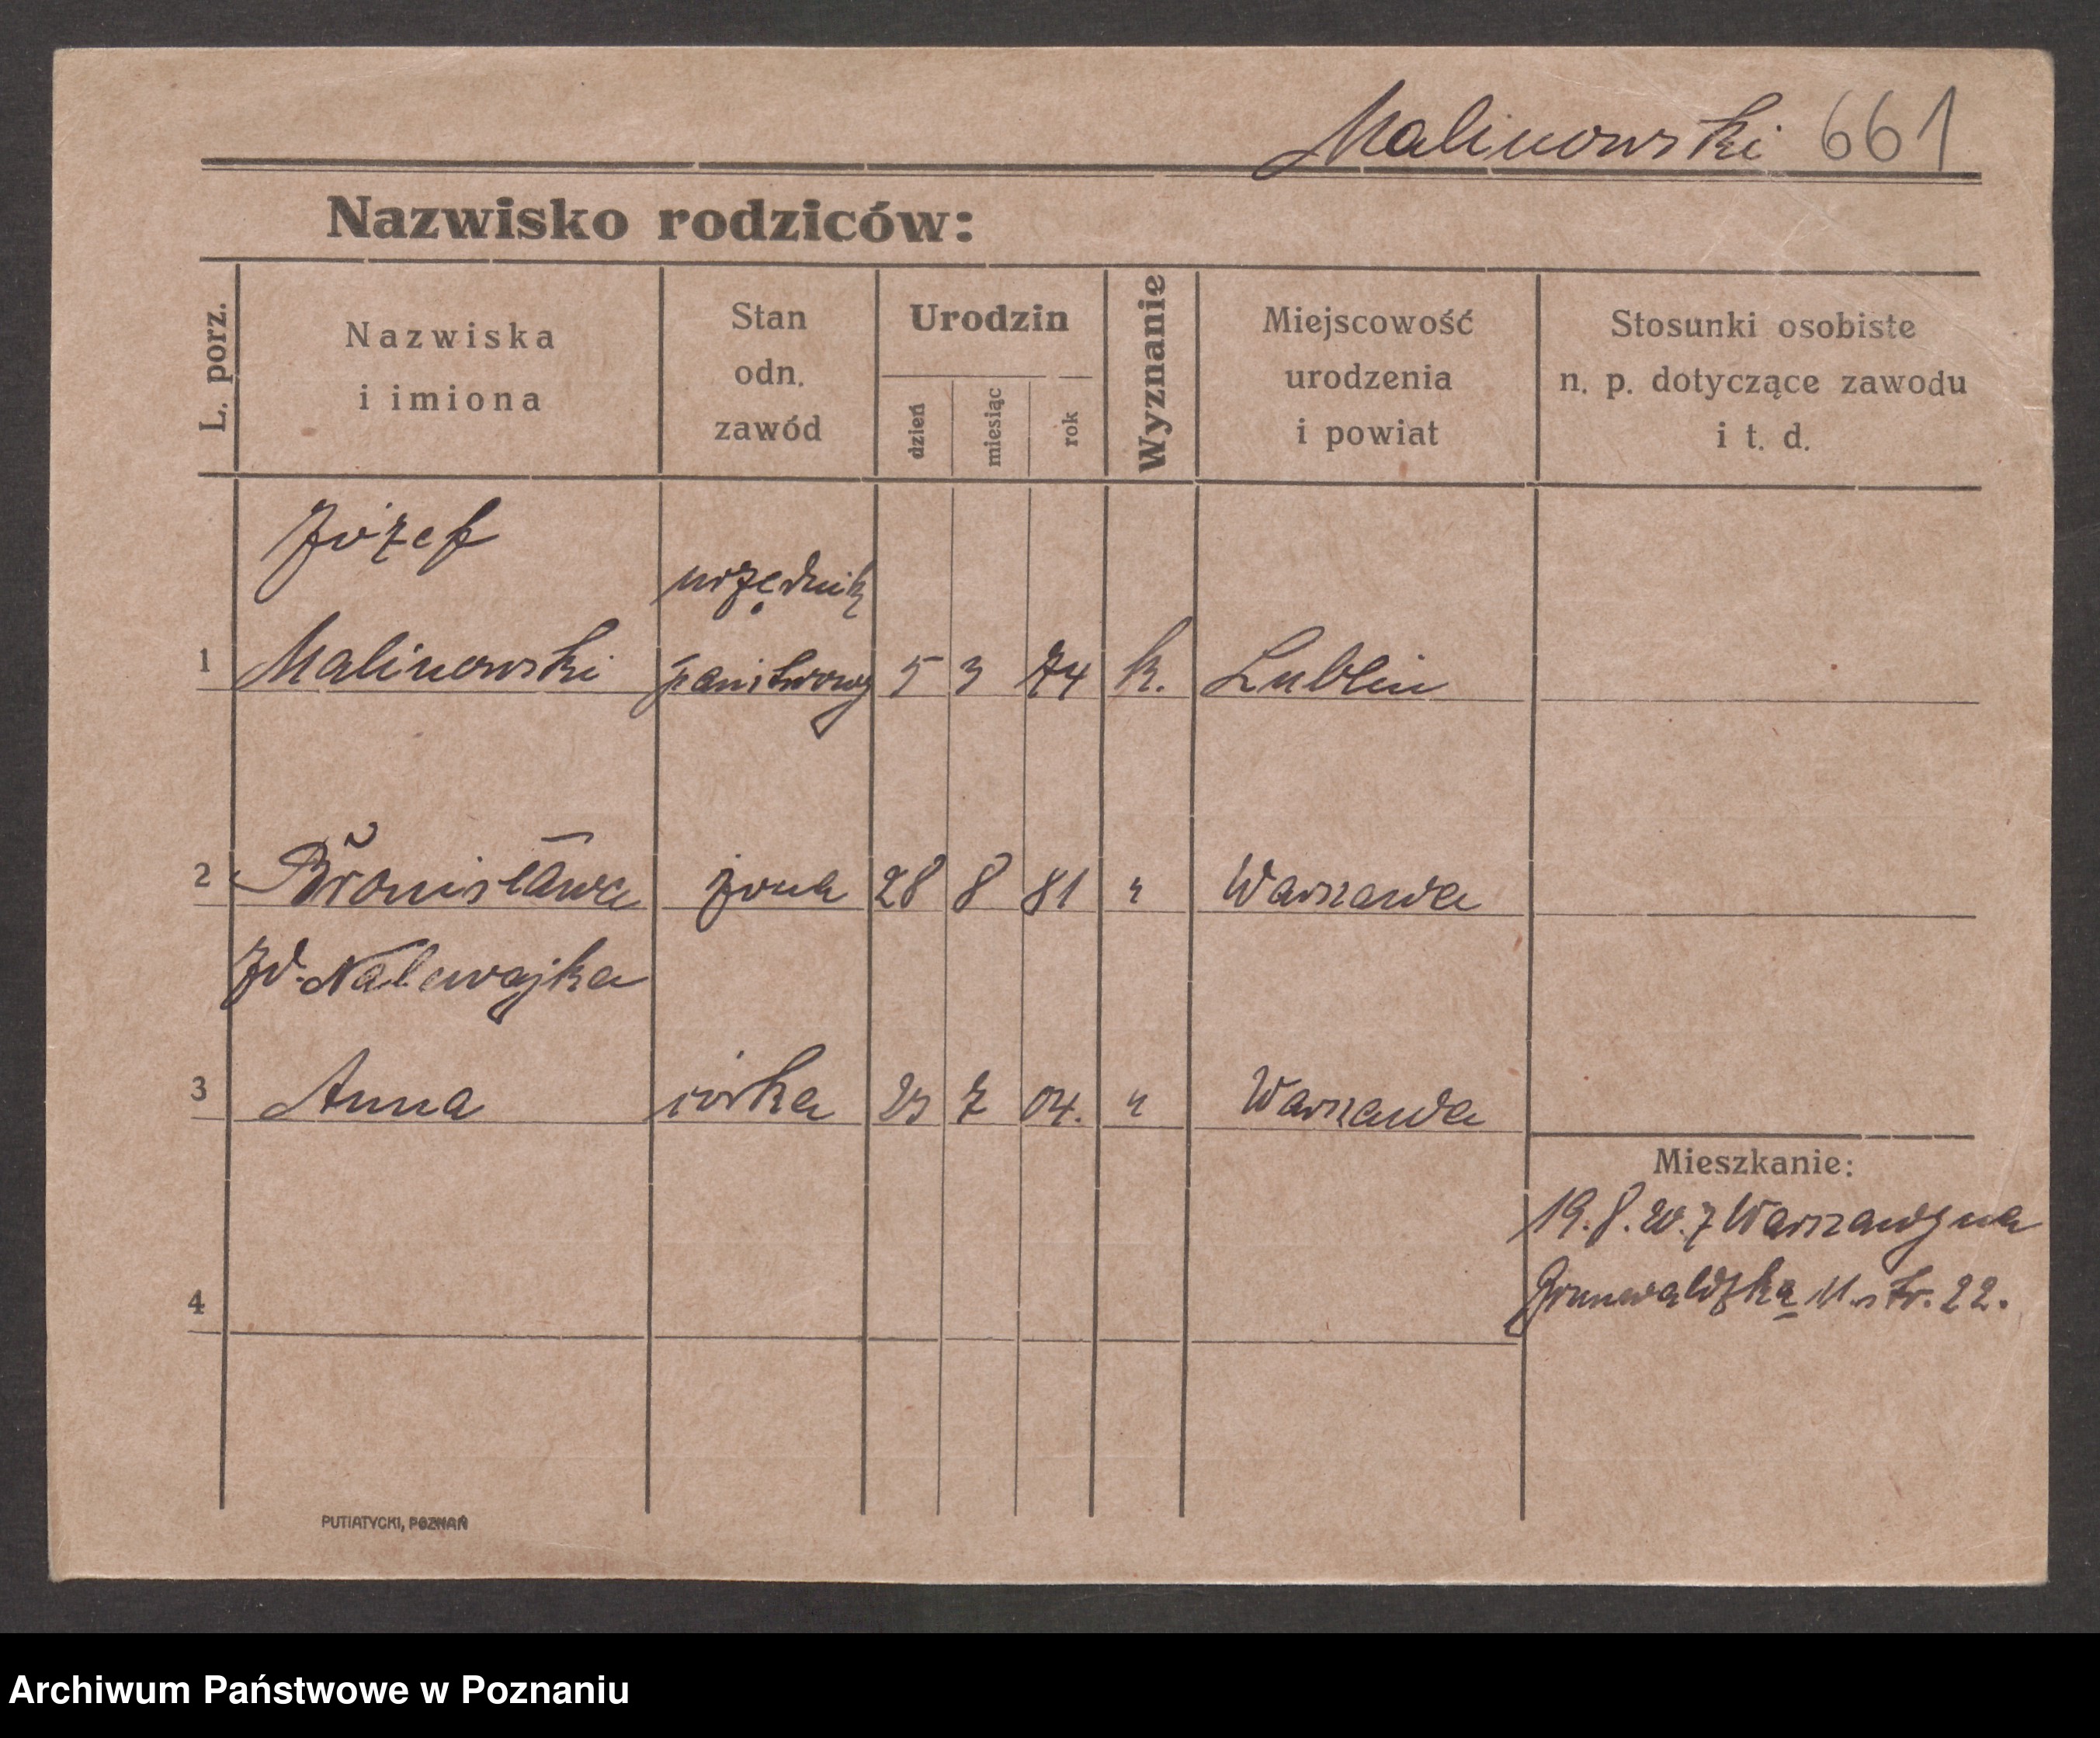 Malinowski 661
Nazwisko rodziców:
L. porz.
Nazwiska
i imiona
Stan
odn.
zawód
Urodzin
dzień
miesiąc
rok
Wyznanie
Miejscowość
urodzenia
i powiat
Stosunki osobiste
n. p. dotyczące zawodu
i t. d.
Józef
urzędnik
1 Malinowski państwowy 5 3 74 k. Lublin
2 Bronisława żona 28 8 81 " Warszawa
zd. Nalewajka
3 Anna córka 23 7 04. " Warszawa
Mieszkanie:
19.8.20. z Warszawy na
4
Grunwaldzką 11. str. 22.
PUTIATYCKI, POZNAŃ
Archiwum Państwowe w Poznaniu